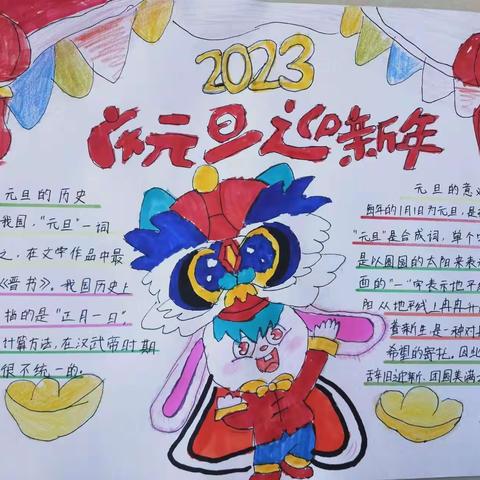 2023
庆元旦迎新年
元旦的历史
我国，"元旦"一词
之，在文学作品中最
《晋书》。我国历史上
指的是"正月一日"
计算方法，在汉武帝时期
很不统一的。
元旦的意义
每年的1月1日为元旦，是
"元旦"是合成词，单个
是以圆圆的太阳来表
面的"一"字表示地平
阳从地平线上冉冉升
着新生是一种对
希望的寄托，因此
辞旧迎新、团圆美满